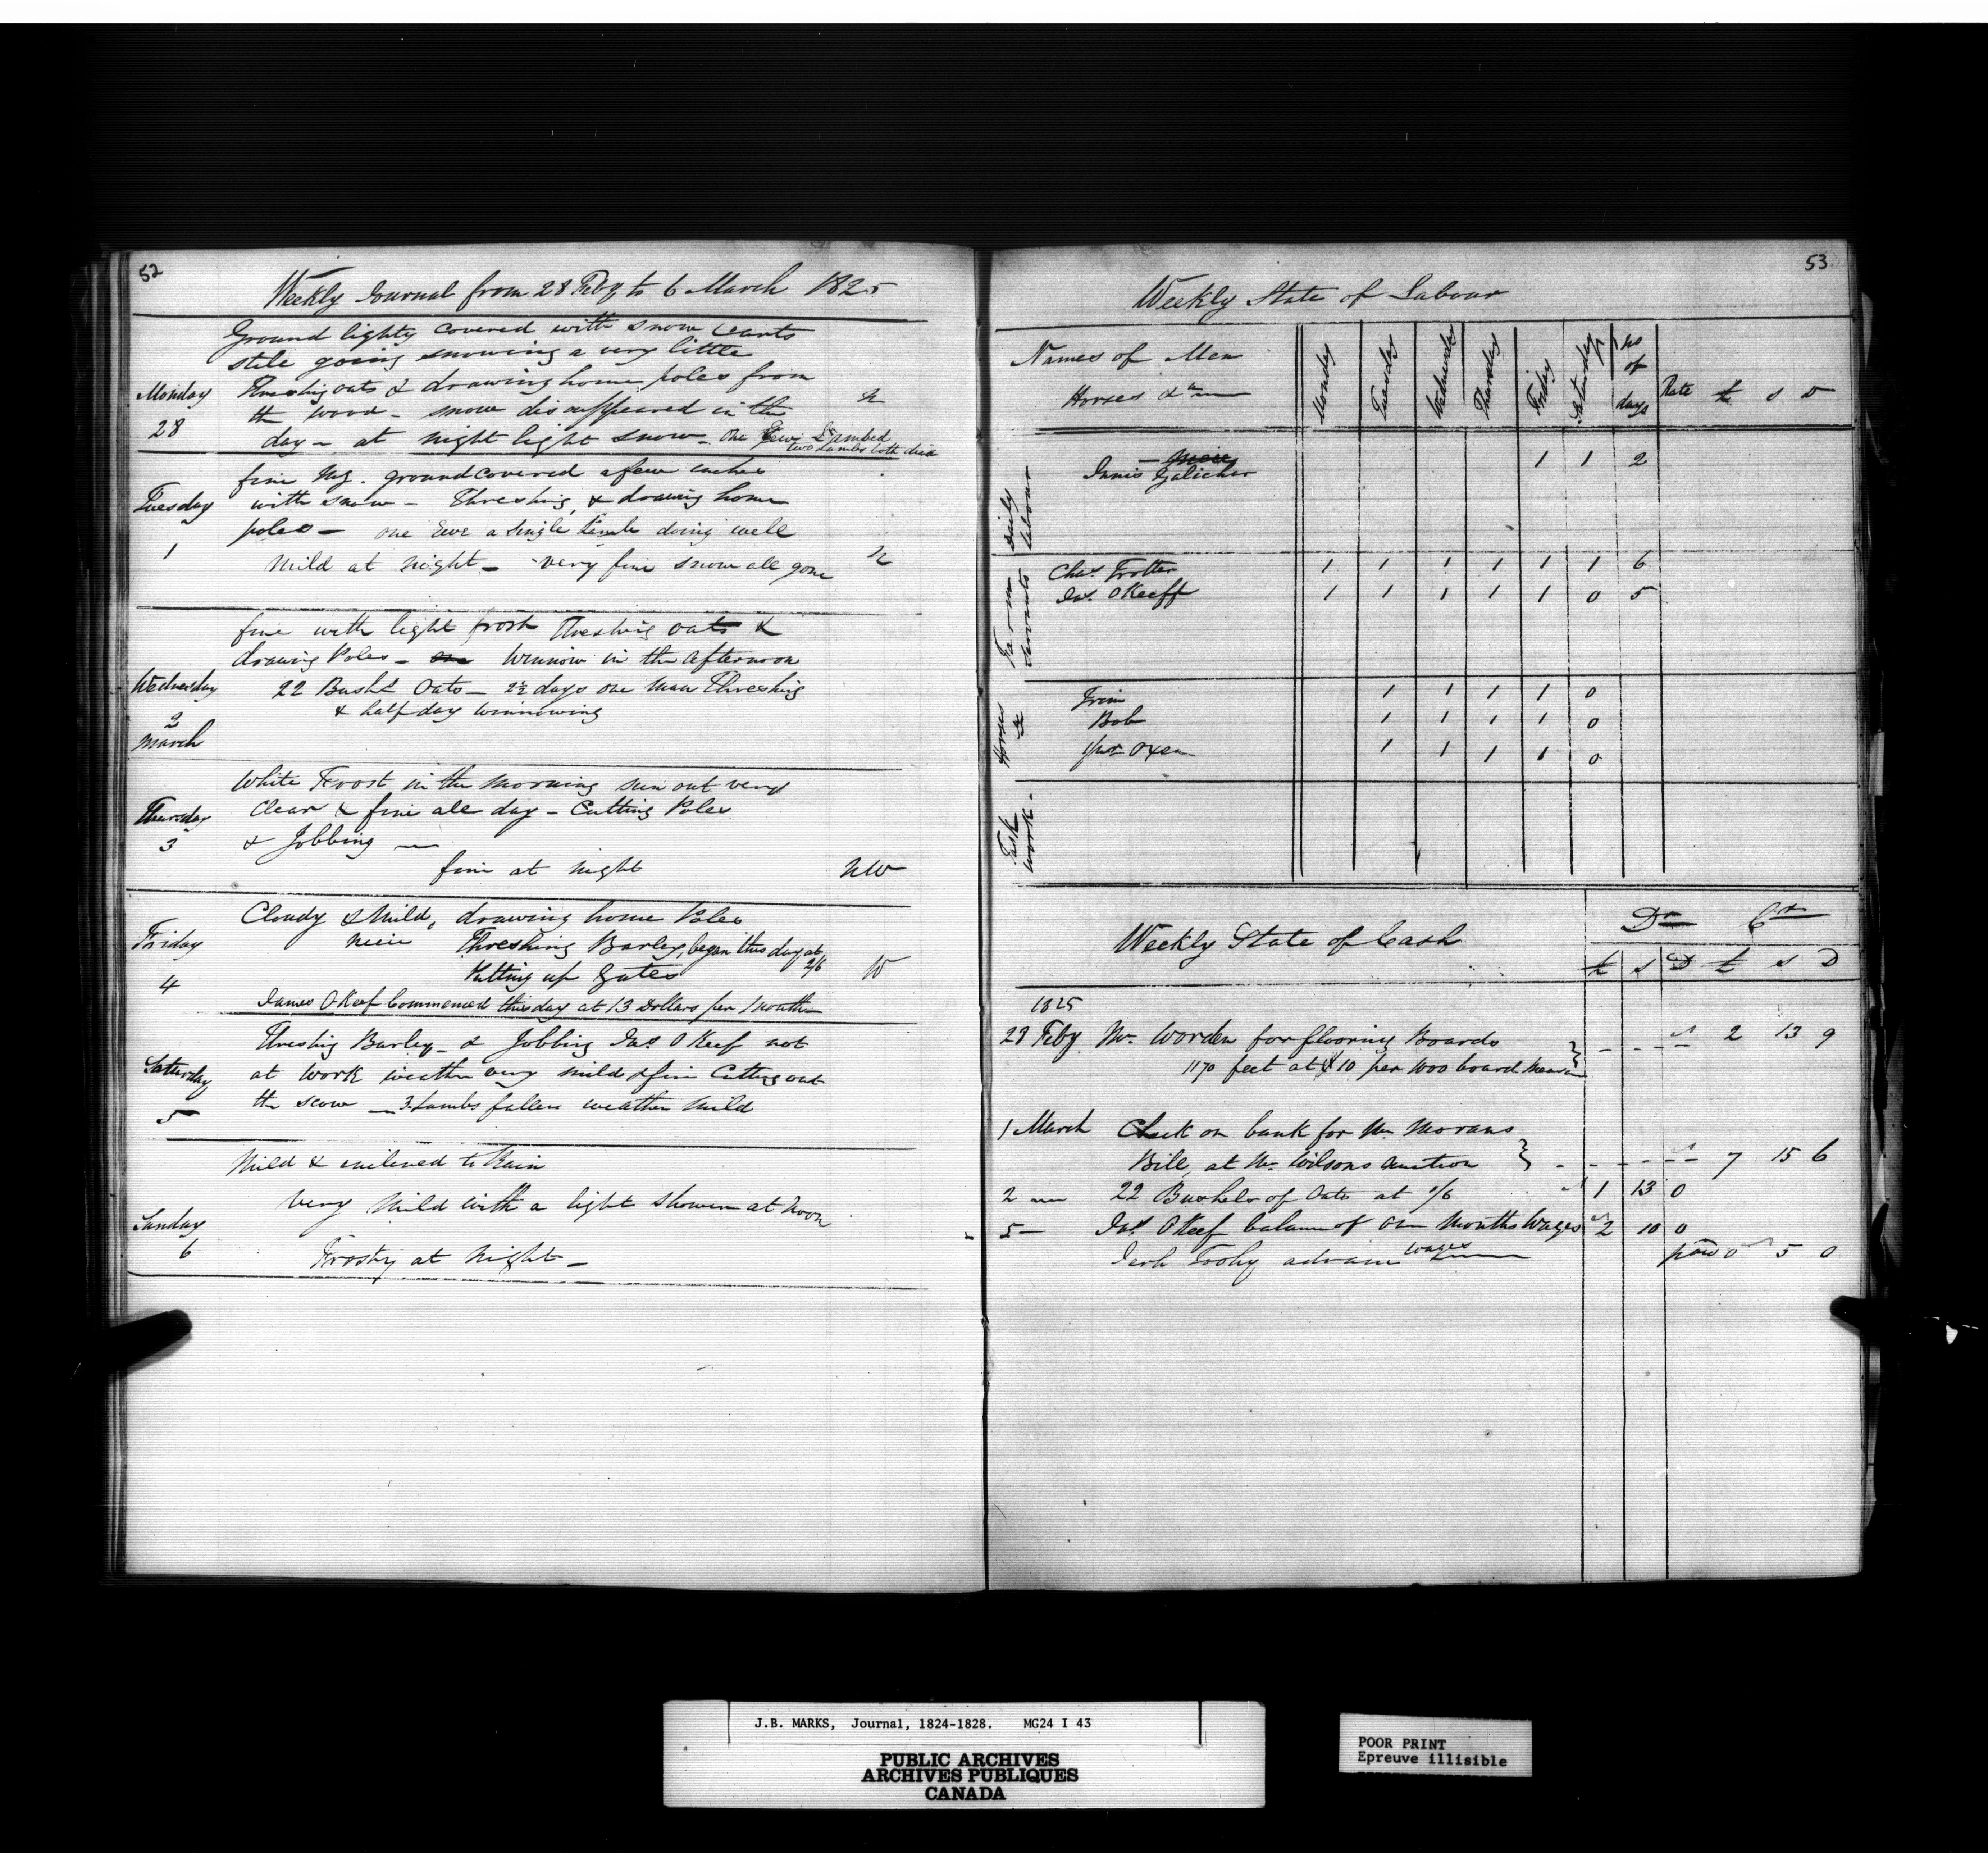 52
Weekly Journal from 28 Feby to 6 March 1825
Ground lighty covered with snow carts
stile going snowing a very little
Monday Threshing oats & drawing home poles from
the wood - snow disappeared in the N
28 day - at night light snow - One Ewe Lambed
two Lambs both died
fine Mg. ground covered a few inches
Tuesday with snow - Threshing, & drawing home
poles - one Ewe a single Lamb doing well
1 Mild at night - very fine snow all gone N
fine with light frost Threshing oats &
drawing Poles - Winnow in the afternoon
Wednesday 22 Bushls Oats - 2½ days one man Threshing
& half day winnowing
2
March
White Frost in the morning sun out very
Thursday Clear & fine all day - Cutting Poles
3 & Jobbing
fine at night NW
Cloudy & Mild, drawing home Poles
Friday Threshing Barley, began this day at
2/6
Putting up Gates W
4
James OKeef Commenced this day at 13 Dollars per Month
Threshig Barley - & Jobbing Jas. OKeef not
Saturday at work weather very mild & fine Cutting out
the scow - 3 Lambs fallen weather mild
5
Mild & inclined to Rain
very mild with a light shower at Noon
Sunday
6 Frosty at Night -
53
Weekly State of Labour
Names of Men
Horses &c
Monday Tuesday Wednesday Thursday Friday Saturday No of days Rate £ s D
Daily Labour
Innis Galicher 1 1 2
Farm Servants
Chas. Trotter 1 1 1 1 1 1 6
Jas. OKeeff 1 1 1 1 1 0 5
Horses &
1 1 1 1 0
Bob 1 1 1 1 0
Oxen 1 1 1 1 0
Task work.
Weekly State of Cash Dr Cr
£ s D £ s D
1825
28 Feby Mr. Worden for flooring Boards 2 13 9
1170 feet at $10 per 1000 board
1 March Check on bank for Mr. Morans
Bill, at Mr. Wilsons Auction 7 15 6
2 22 Bushels of Oats at 1/6 1 13 0
5 Jas. OKeef balance of one Months Wages 2 10 0
advance wages 0 5 0
J.B. MARKS, Journal, 1824-1828. MG24 I 43
PUBLIC ARCHIVES
ARCHIVES PUBLIQUES
CANADA
POOR PRINT
Epreuve illisible